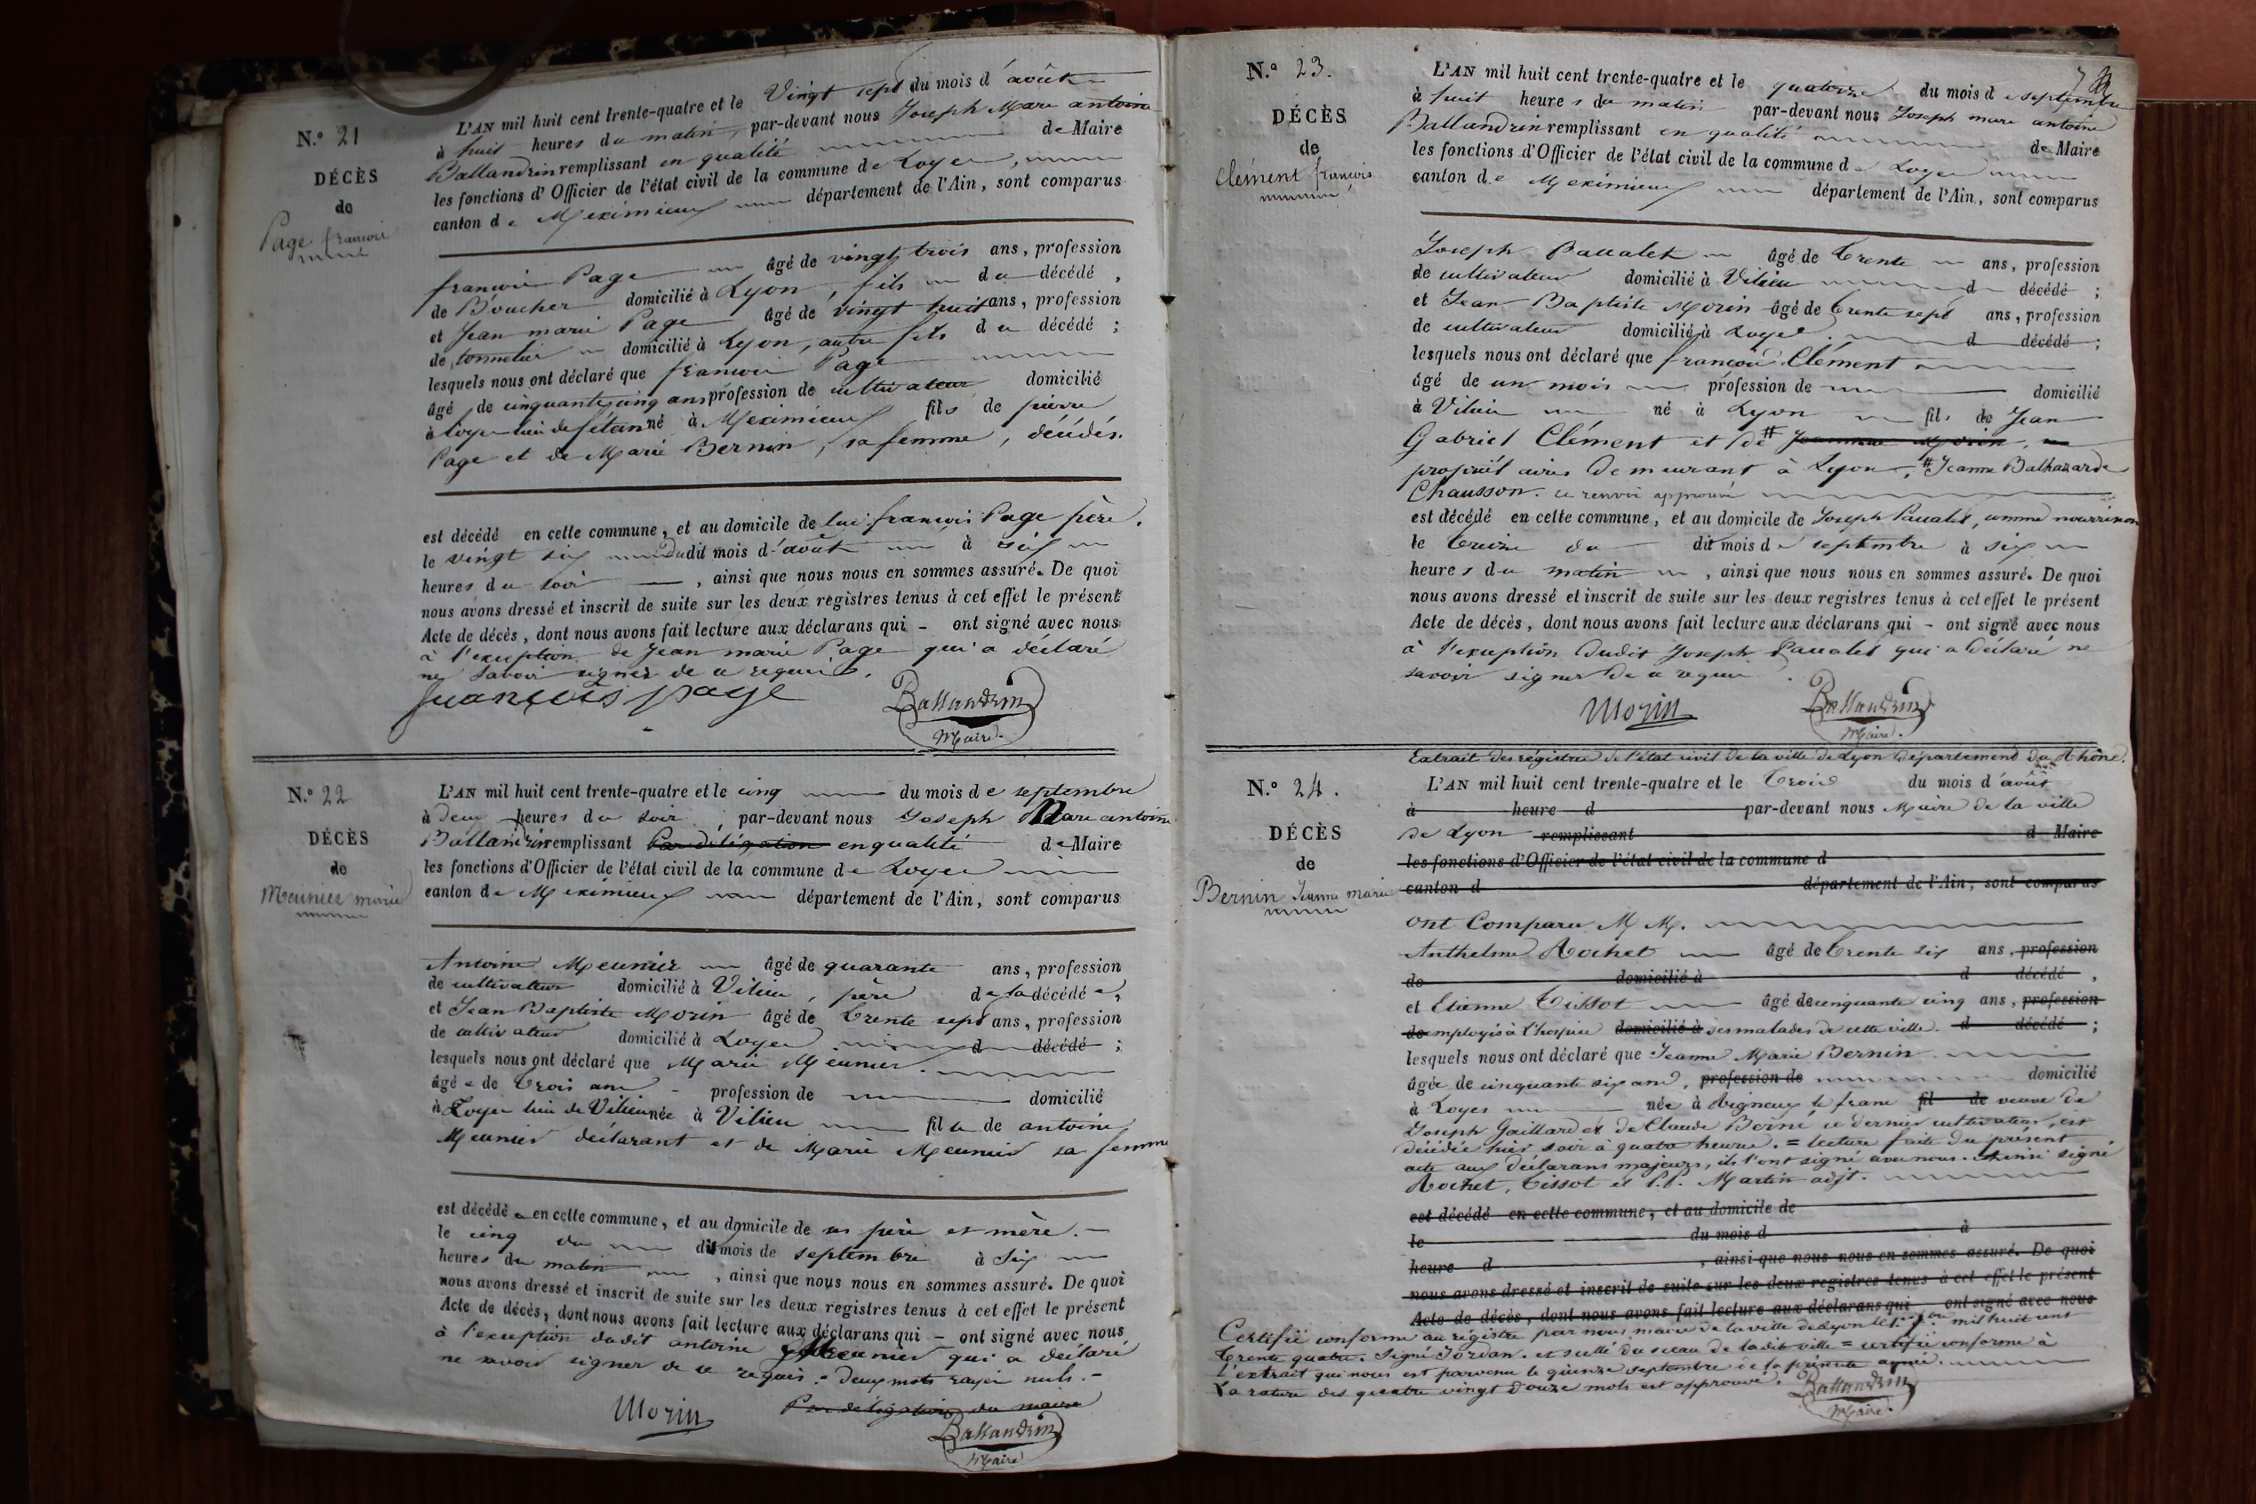 N.° 21
DÉCÈS
de
Page françois
L'AN mil huit cent trente-quatre et le Vingt sept du mois d'août
à huit heures du matin, par-devant nous Joseph Marie antoine
Ballandrin remplissant en qualité de Maire
les fonctions d'Officier de l'état civil de la commune de Loyes,
canton de Meximieux département de l'Ain, sont comparus
françois Page âgé de vingt trois ans, profession
de Boucher domicilié à Lyon, fils du décédé,
et Jean marie Page âgé de vingt huit ans, profession
de tonnelier domicilié à Lyon, autre fils du décédé;
lesquels nous ont déclaré que françois Page
âgé de cinquante cinq ans profession de cultivateur domicilié
à Loyes lieu de né à Meximieux fils de pierre
Page et de Marie Bernin, sa femme, décédés.
est décédé en cette commune, et au domicile de lui françois Page père.
le vingt six dudit mois d'août à six
heures du soir, ainsi que nous nous en sommes assuré. De quoi
nous avons dressé et inscrit de suite sur les deux registres tenus à cet effet le présent
Acte de décès, dont nous avons fait lecture aux déclarans qui - ont signé avec nous
à l'exception de Jean marie Page qui a déclaré
ne savoir signer de ce requis.
françois page Ballandrin
Maire.
N.° 22
DÉCÈS
de
Meunier marie
L'AN mil huit cent trente-quatre et le cinq du mois de septembre
à deux heures du soir, par-devant nous Joseph Marie antoine
Ballandrin remplissant Par délégation en qualité de Maire
les fonctions d'Officier de l'état civil de la commune de Loyes
canton de Meximieux département de l'Ain, sont comparus
Antoine Meunier âgé de quarante ans, profession
de cultivateur domicilié à Vilieu, père de la décédée,
et Jean Baptiste Morin âgé de trente sept ans, profession
de cultivateur domicilié à Loyes d décédé;
lesquels nous ont déclaré que Marie Meunier.
âgée de trois ans profession de domicilié
à Loyes lieu de Vilieu née à Vilieu fille de antoine
Meunier déclarant et de Marie Meunier sa femme
est décédée en cette commune, et au domicile de ses père et mère.
le cinq du dit mois de septembre à six
heures du matin, ainsi que nous nous en sommes assuré. De quoi
nous avons dressé et inscrit de suite sur les deux registres tenus à cet effet le présent
Acte de décès, dont nous avons fait lecture aux déclarans qui - ont signé avec nous
à l'exception dudit antoine Meunier qui a déclaré
ne savoir signer de ce requis. = deux mots rayés nuls. -
Morin Par délégation du maire
Ballandrin
Maire
N.° 23.
DÉCÈS
de
Clément françois
L'AN mil huit cent trente-quatre et le quatorze du mois de septembre
à huit heures du matin par-devant nous Joseph marie antoine
Ballandrin remplissant en qualité de Maire
les fonctions d'Officier de l'état civil de la commune de Loyes
canton de Meximieux département de l'Ain, sont comparus
Joseph Paccalet âgé de trente ans, profession
de cultivateur domicilié à Vilieu d décédé;
et Jean Baptiste Morin âgé de trente sept ans, profession
de cultivateur domicilié à Loyes. d décédé;
lesquels nous ont déclaré que françois Clément
âgé de un mois profession de domicilié
à Vilieu né à Lyon fils de Jean
Gabriel Clément et de # Jeanne Morin,
propriétaires demeurant à Lyon, # Jeanne Balthazarde
Chausson. ce renvoi approuvé
est décédé en cette commune, et au domicile de Joseph Paccalet, comme nourrisson
le treize du dit mois de septembre à six
heures du matin, ainsi que nous nous en sommes assuré. De quoi
nous avons dressé et inscrit de suite sur les deux registres tenus à cet effet le présent
Acte de décès, dont nous avons fait lecture aux déclarans qui - ont signé avec nous
à l'exception dudit Joseph Paccalet qui a déclaré ne
savoir signer de ce requis.
Morin Ballandrin
Maire.
N.° 24.
DÉCÈS
de
Bernin Jeanne marie
Extrait des régistres de l'état civil de la ville de Lyon département du Rhône.
L'AN mil huit cent trente-quatre et le trois du mois d'août
à heure d par-devant nous Maire de la ville
de Lyon remplissant d Maire
les fonctions d'Officier de l'état civil de la commune d
canton d département de l'Ain, sont comparus
ont Comparu M M.
Anthelme Rochet âgé de trente six ans, profession
de domicilié à d décédé,
et Etienne Tissot âgé de cinquante cinq ans, profession
de employés à l'hospice domicilié à des malades de cette ville. d décédé;
lesquels nous ont déclaré que Jeanne Marie Bernin
âgée de cinquante six ans, profession de domicilié
à Loyes née à Rigneux le franc fil de veuve de
Joseph Gaillard et de Claude Berne ce dernier cultivateur, est
décédée hier soir à quatre heures. = lecture faite du présent
acte aux déclarans majeurs, ils l'ont signé avec nous. Ainsi signé
Rochet, Tissot et Martin adjt.
est décédé en cette commune, et au domicile de
le du mois d à
heure d, ainsi que nous nous en sommes assuré. De quoi
nous avons dressé et inscrit de suite sur les deux registres tenus à cet effet le présent
Acte de décès, dont nous avons fait lecture aux déclarans qui ont signé avec nous
Certifié conforme au régistre par nous maire de la ville de Lyon le mil huit cent
trente quatre. Signé Jordan. et scellé du sceau de ladite ville = certifié conforme à
l'extrait qui nous est parvenu le quinze septembre de la présente année.
La rature des quatre vingt douze mots est approuvé. Ballandrin
Maire.